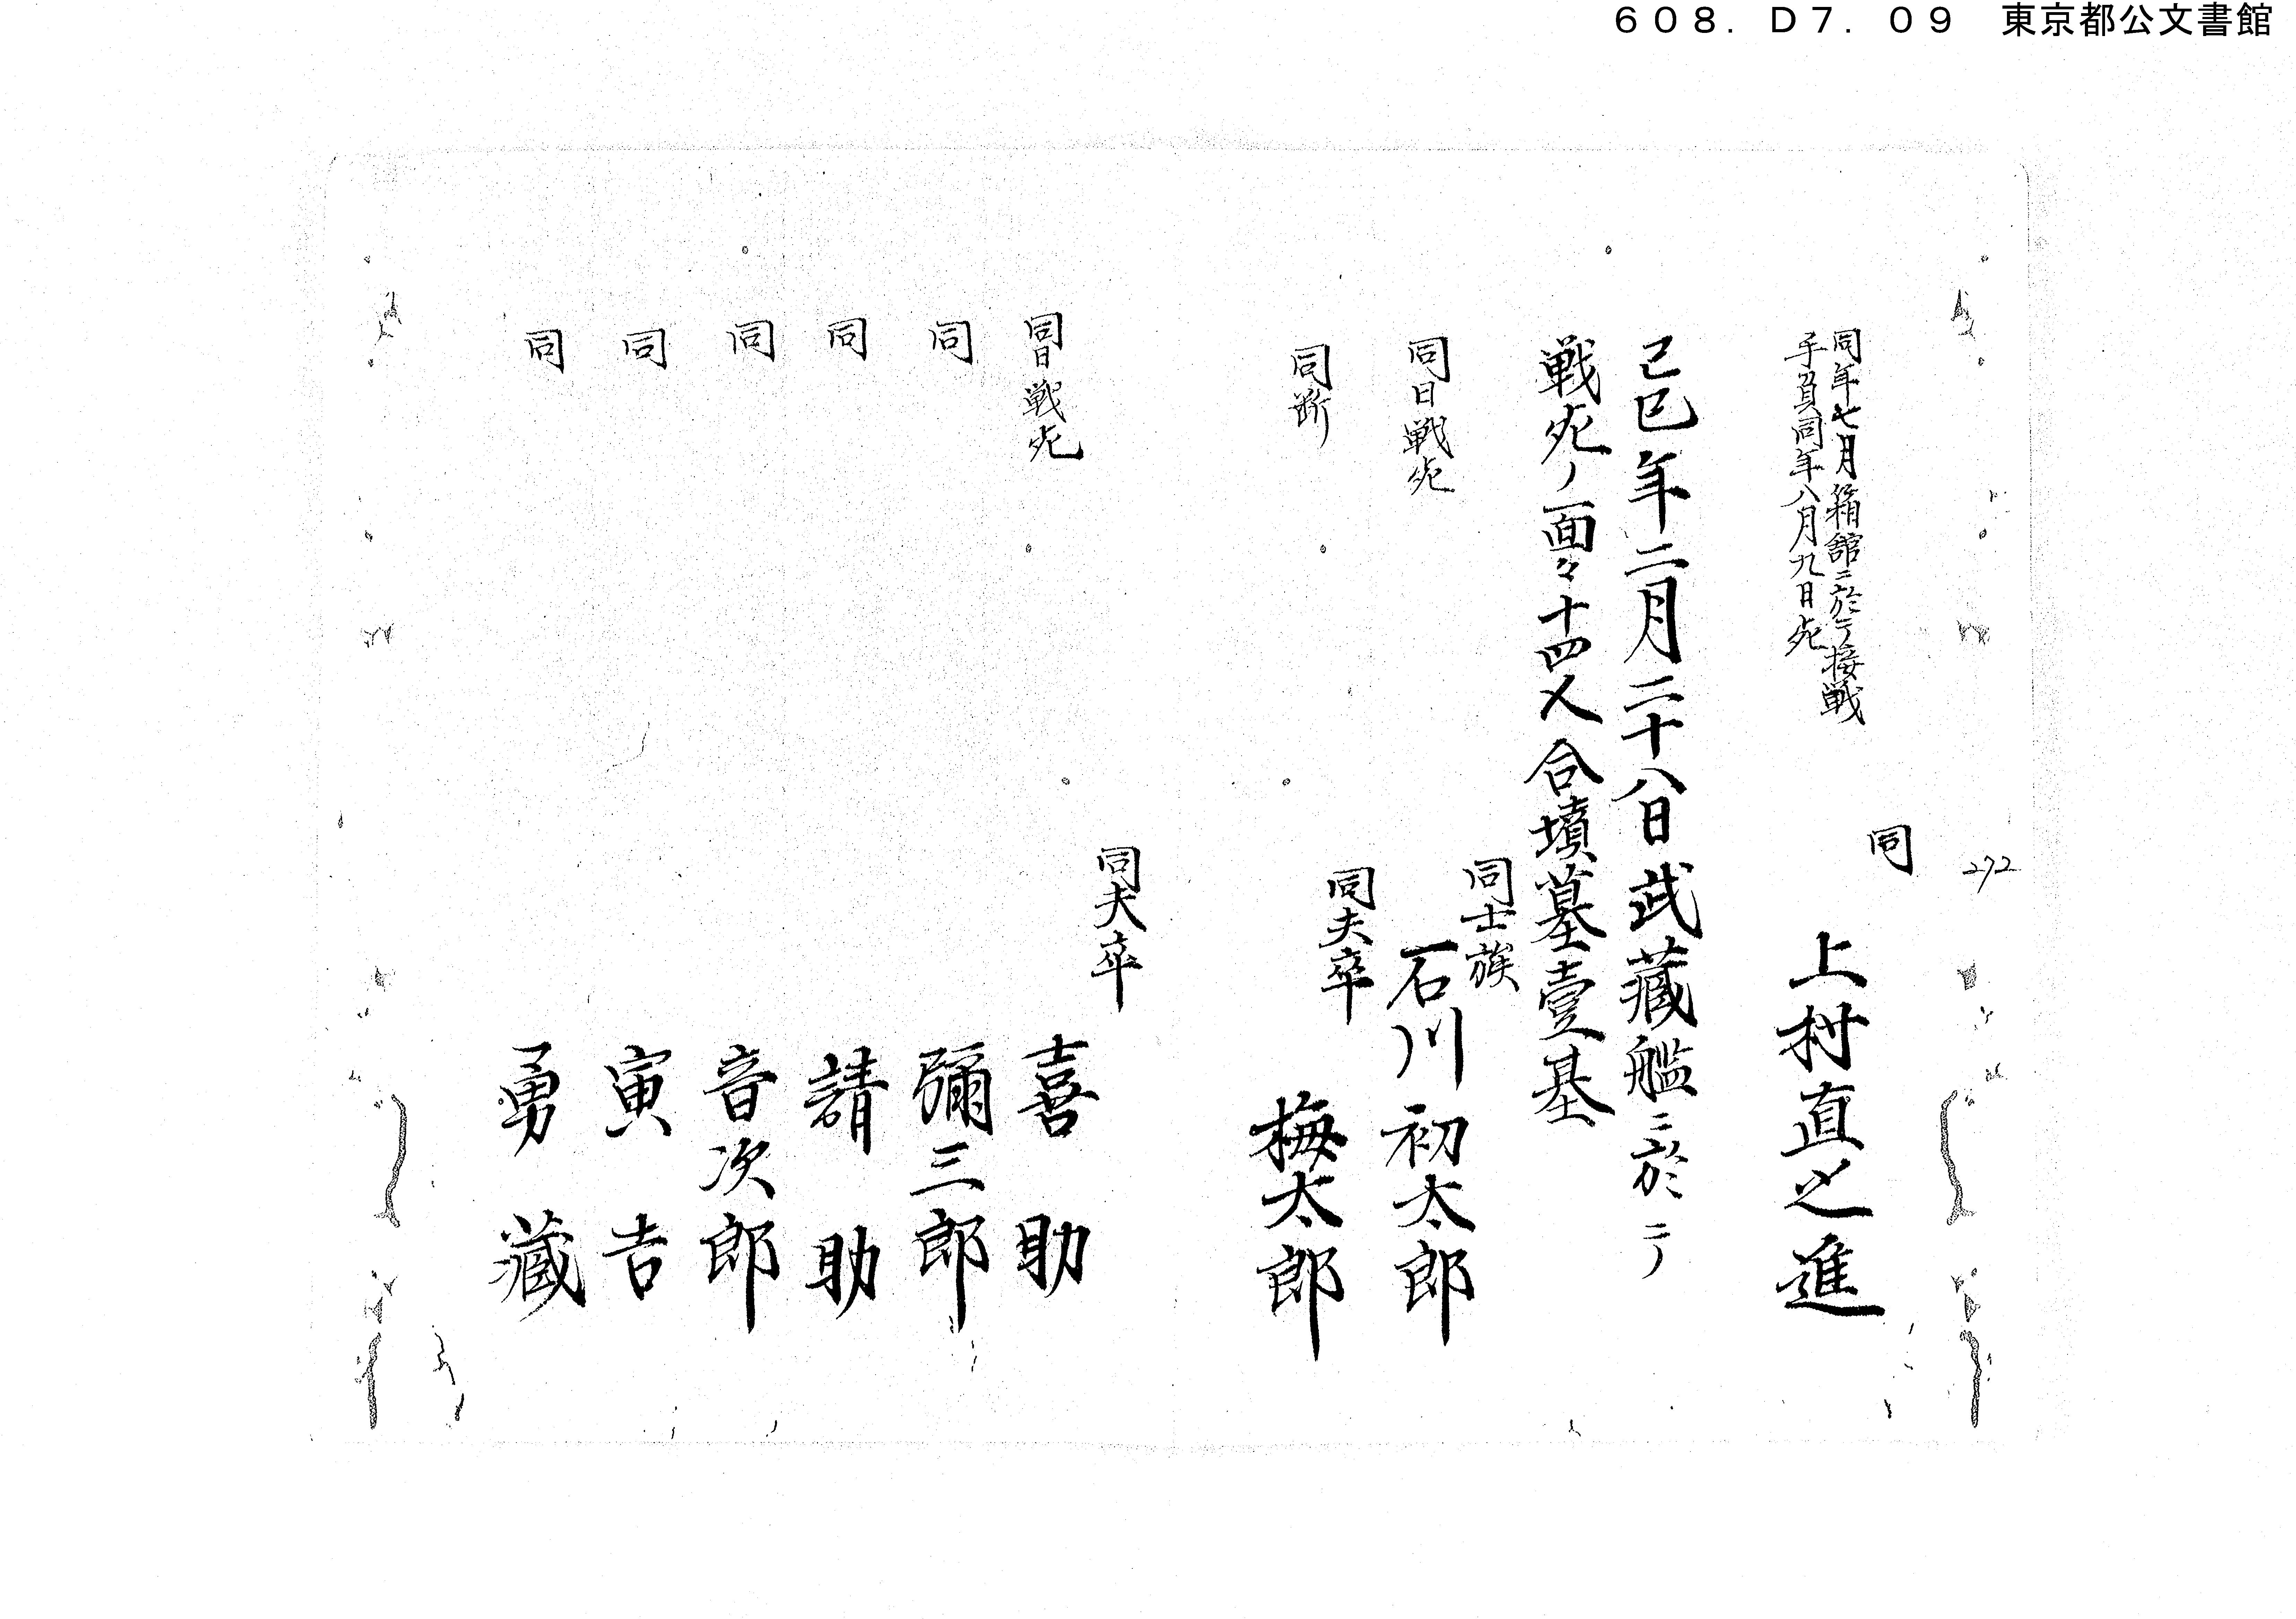 ６０８．Ｄ７．０９　東京都公文書館
272
同
同年七月箱舘ニ於テ接戦
手負同年八月九日死
上村直之進
己巳年二月二十八日武藏艦ニ於テ
戦死ノ面々十四人合墳墓壹基
同士族
同日戦死
石川初太郎
同夫卒
同断
梅太郎
同夫卒
同日戦死
喜助
同
彌三郎
同
請助
同
音次郎
同
寅吉
同
勇藏